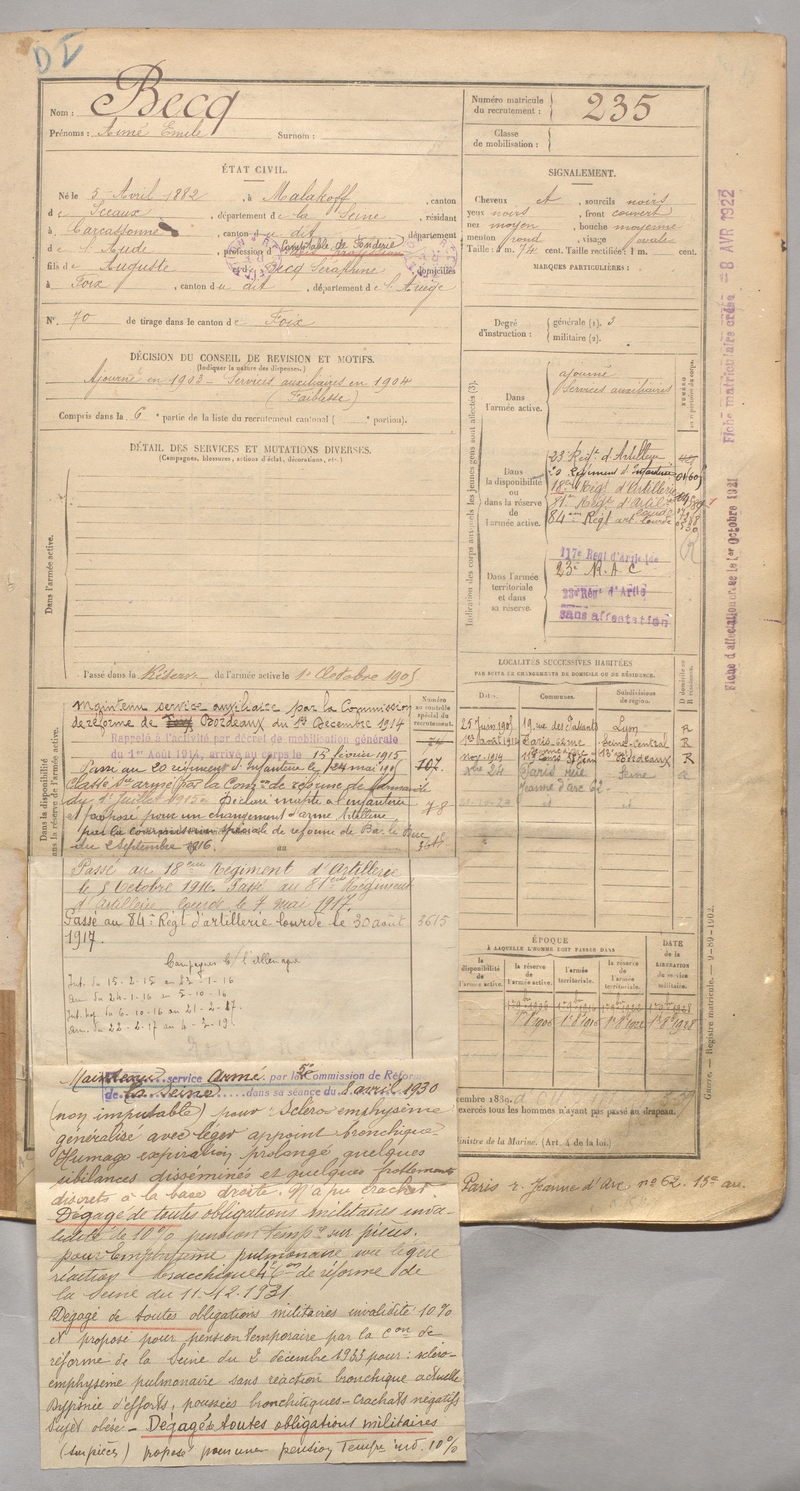 D I
Nom : Becq
Prénoms : Aimé Emile Surnom :
Numéro matricule du recrutement : 235
Classe de mobilisation :
ÉTAT CIVIL.
Né le 5 Avril 1882, à Malakoff, canton
de Sceaux, département de la Seine, résidant
à Carcassonne, canton du dit, département
de l'Aude, profession de Comptable de Fonderie
fils de Auguste et de Becq Séraphine domiciliés
à Foix, canton du dit, département de l'Ariège
N° 70 de tirage dans le canton de Foix
SIGNALEMENT.
Cheveux et, sourcils noirs
yeux noirs, front couvert
nez moyen, bouche moyenne
menton rond, visage ovale
Taille : 1 m. 74 cent. Taille rectifiée : 1 m. cent.
MARQUES PARTICULIÈRES :
Degré d'instruction : générale (1). 3
militaire (2).
DÉCISION DU CONSEIL DE REVISION ET MOTIFS.
(Indiquer la nature des dispenses.)
Ajourné en 1903 - Services auxiliaires en 1904
(Faiblesse)
Compris dans la 6e partie de la liste du recrutement cantonal ( e portion).
DÉTAIL DES SERVICES ET MUTATIONS DIVERSES.
(Campagnes, blessures, actions d'éclat, décorations, etc.)
Dans l'armée active.
Passé dans la Réserve de l'armée active le 1er Octobre 1905
Indication des corps auxquels les jeunes gens sont affectés (3).
Dans l'armée active.
ajourné
Services auxiliaires
Dans la disponibilité ou dans la réserve de l'armée active.
23 Régt d'Artillerie
20 Régiment d'Infanterie
18eme Régt d'Artillerie
81me Régt d'Artil lourde
84eme Régt art lourde
Dans l'armée territoriale et dans sa réserve.
117e Régt d'Artie lde
23e R.A.C
23e Régt d'Artie
sans affectation
Fiche d'affectation créée le 1er Octobre 1921
Fiche matriculaire créée - 8 AVR 1922
LOCALITÉS SUCCESSIVES HABITÉES
PAR SUITE DE CHANGEMENTS DE DOMICILE OU DE RÉSIDENCE.
Dates. Communes. Subdivisions de région. D domicile ou R résidence.
Lyon R
1er août 1914 Seine Central R
Nov. 1914 Bordeaux R
Paris rue Seine
Jeanne d'arc 62
Dans la disponibilité ou dans la réserve de l'armée active.
Numéro au contrôle spécial du recrutement.
Maintenu service auxiliaire par la Commission
de réforme de Bordeaux du 1er Décembre 1914
Rappelé à l'activité par décret de mobilisation générale
du 1er Août 1914, arrivé au corps le 15 février 1915
107
Passé au 20 régiment d'Infanterie le 24 mai 1915
Classé Sce armé par la Comon de réforme de
du 1er Juillet 1915. Déclaré inapte à l'infanterie
et proposé pour un changement d'arme Artillerie
78
par la commission spéciale de réforme de Bar le Duc
du 2 Septembre 1916.
Passé au 18eme Régiment d'Artillerie
le 5 Octobre 1916. Passé au 81eme Régiment
d'Artillerie lourde le 7 mai 1917.
Passé au 84e Régt d'artillerie lourde le 30 août
1917.
3615
Campagnes C/ l'allemagne
Int. du 15-2-15 au 23-1-16
arm. du 24-1-16 au 5-10-16
Int. hop du 6-10-16 au 21-2-17
arm. du 22-2-17 au 4-3-19
ÉPOQUE
À LAQUELLE L'HOMME DOIT PASSER DANS
la disponibilité de l'armée active. la réserve de l'armée active. l'armée territoriale. la réserve de l'armée territoriale. DATE de la LIBÉRATION du service militaire.
Gnorre. — Registre matricule. — 9-89-1902.
exercés tous les hommes n'ayant pas passé au drapeau.
Ministre de la Marine. (Art. 4 de la loi.)
Paris r. Jeanne d'Arc, no 62. 13e arr.
Maintenu service Armé par la 5e Commission de Réforme
de la Seine dans sa séance du 8 avril 1930
(non imputable) pour : Scléro emphysème
généralisé avec léger appoint bronchique.
Humage expiration prolongé quelques
sibilances disséminés et quelques frottements
discrets à la base droite. N'a pu cracher.
Dégagé de toutes obligations militaires inva-
lidité 10% pension tempre sur pièces.
pour Emphysème pulmonaire avec légère
réaction bronchique 4e Con de réforme de
la Seine du 11.12.1931
Dégagé de toutes obligations militaires invalidité 10%
et proposé pour pension temporaire par la Con de
réforme de la Seine du 2 décembre 1933 pour : scléro-
emphysème pulmonaire sans réaction bronchique actuelle
Dyspnée d'efforts, poussées bronchitiques - Crachats négatifs
Sujet obèse - Dégagé de toutes obligations militaires
(sur pièces) proposé pour une pension Tempre ind. 10%